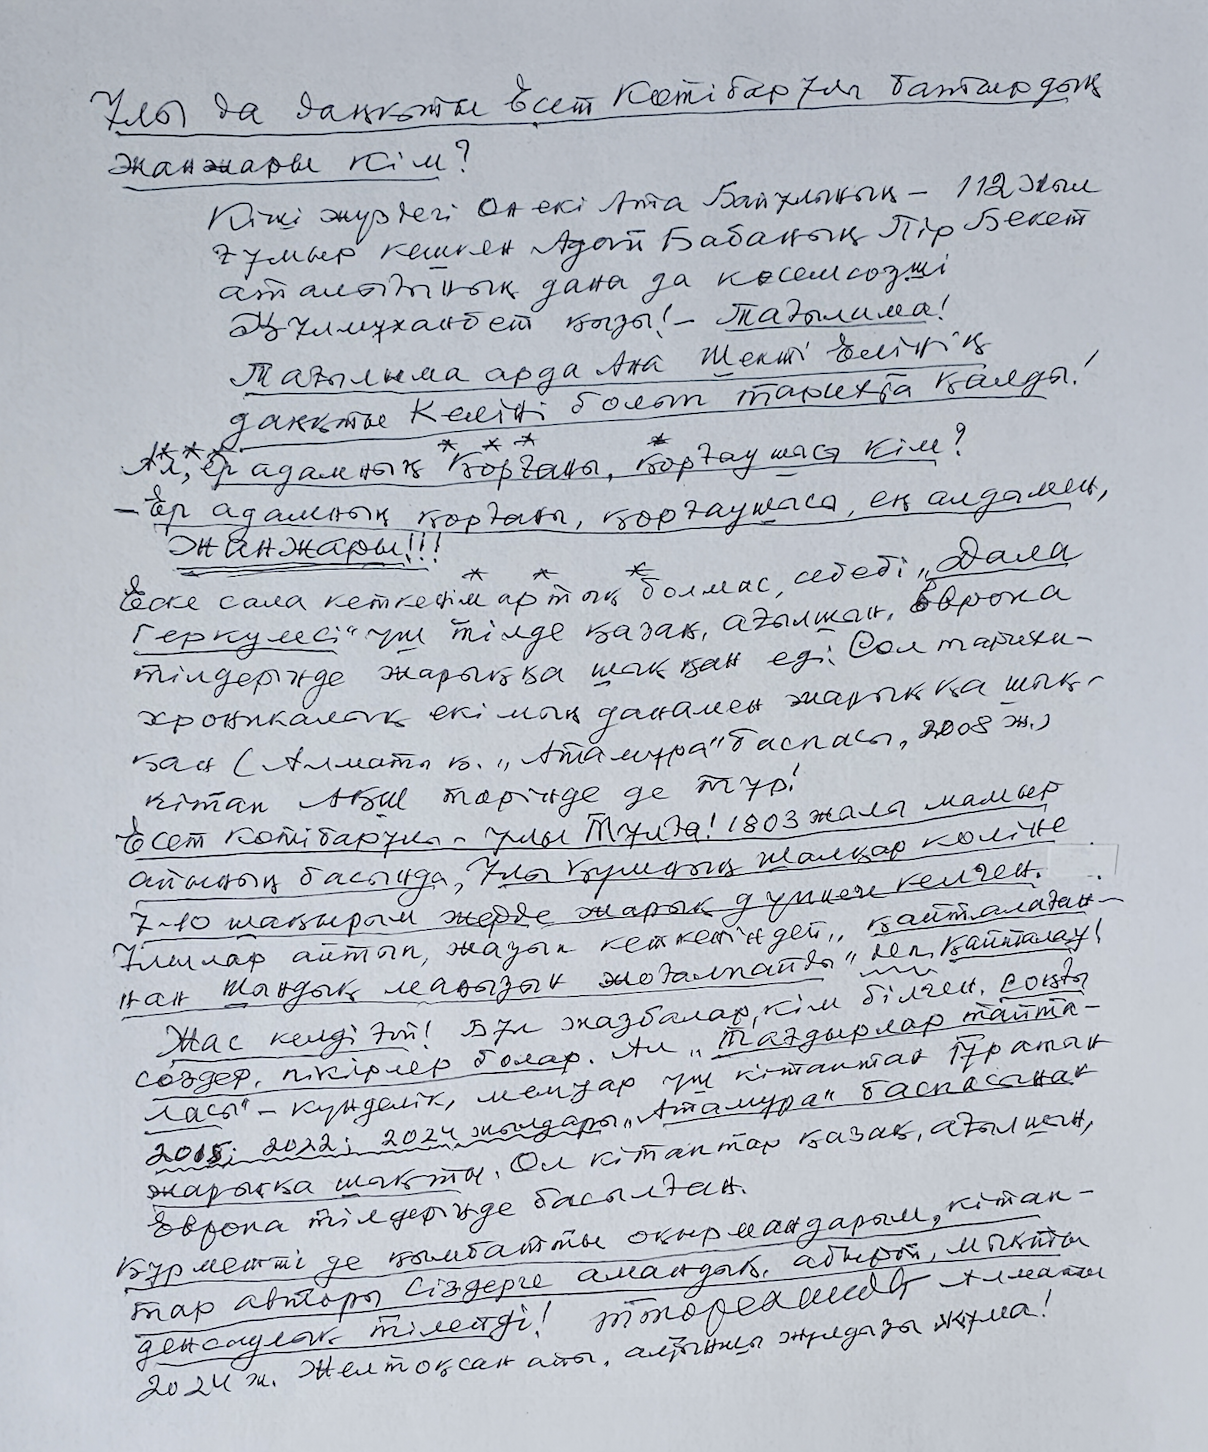 Ұлы да даңқты Есет Көтібарұлы батырдың
жанжары кім?
Кіші жүздегі Он екі Ата Байұлының – 112 жыл
ғұмыр кешкен Адай Бабаның Пір Бекет
аталығының дана да көсемсөзші
Құлмұханбет қызы! – Тағылима!
Тағылыма арда Ана Шекті Елінің
даңқты Келіні болып тарихта қалды!
Ал, ер адамның қорғаны, қорғаушысы кім?
– Ер адамның қорғаны, қорғаушысы, ең алдымен,
Жанжары!!!
Еске сала кеткенім артық болмас, себебі „Дала
Геркулесі" үш тілде қазақ, ағылшын, Европа
тілдерінде жарыққа шыққан еді. Сол тарихи-
хроникалық екі мың данамен жарыққа шық-
қан (Алматы қ. „Атамұра" баспасы, 2008 ж.)
кітап АҚШ төрінде де тұр!
Есет Көтібарұлы – ұлы Тұлға! 1803 жылы мамыр
айының басында, Ұлы Құмның Шалқар көліне
7-10 шақырым жерде жарық дүниеге келген.
Ұлылар айтып, жазып кеткеніндей „қайталаған-
нан шындық маңызын жоғалтпайды" деп қайталау!
Жас келді ғой! Бұл жазбалар, кім білген, соңғы
сөздер, пікірлер болар. Ал „Тағдырлар тайта-
ласы" – күнделік, мемуар үш кітаптан тұратын
2015; 2022; 2024 жылдары „Атамұра" баспасынан
жарыққа шықты. Ол кітаптар қазақ, ағылшын,
Европа тілдерінде басылған.
Құрметті де қымбатты оқырмандарым, кітап-
тар авторы Сіздерге амандық, абырой, мықты
денсаулық тілейді! Алматы
2024 ж. Желтоқсан айы, алтыншы жұлдызы жұма!